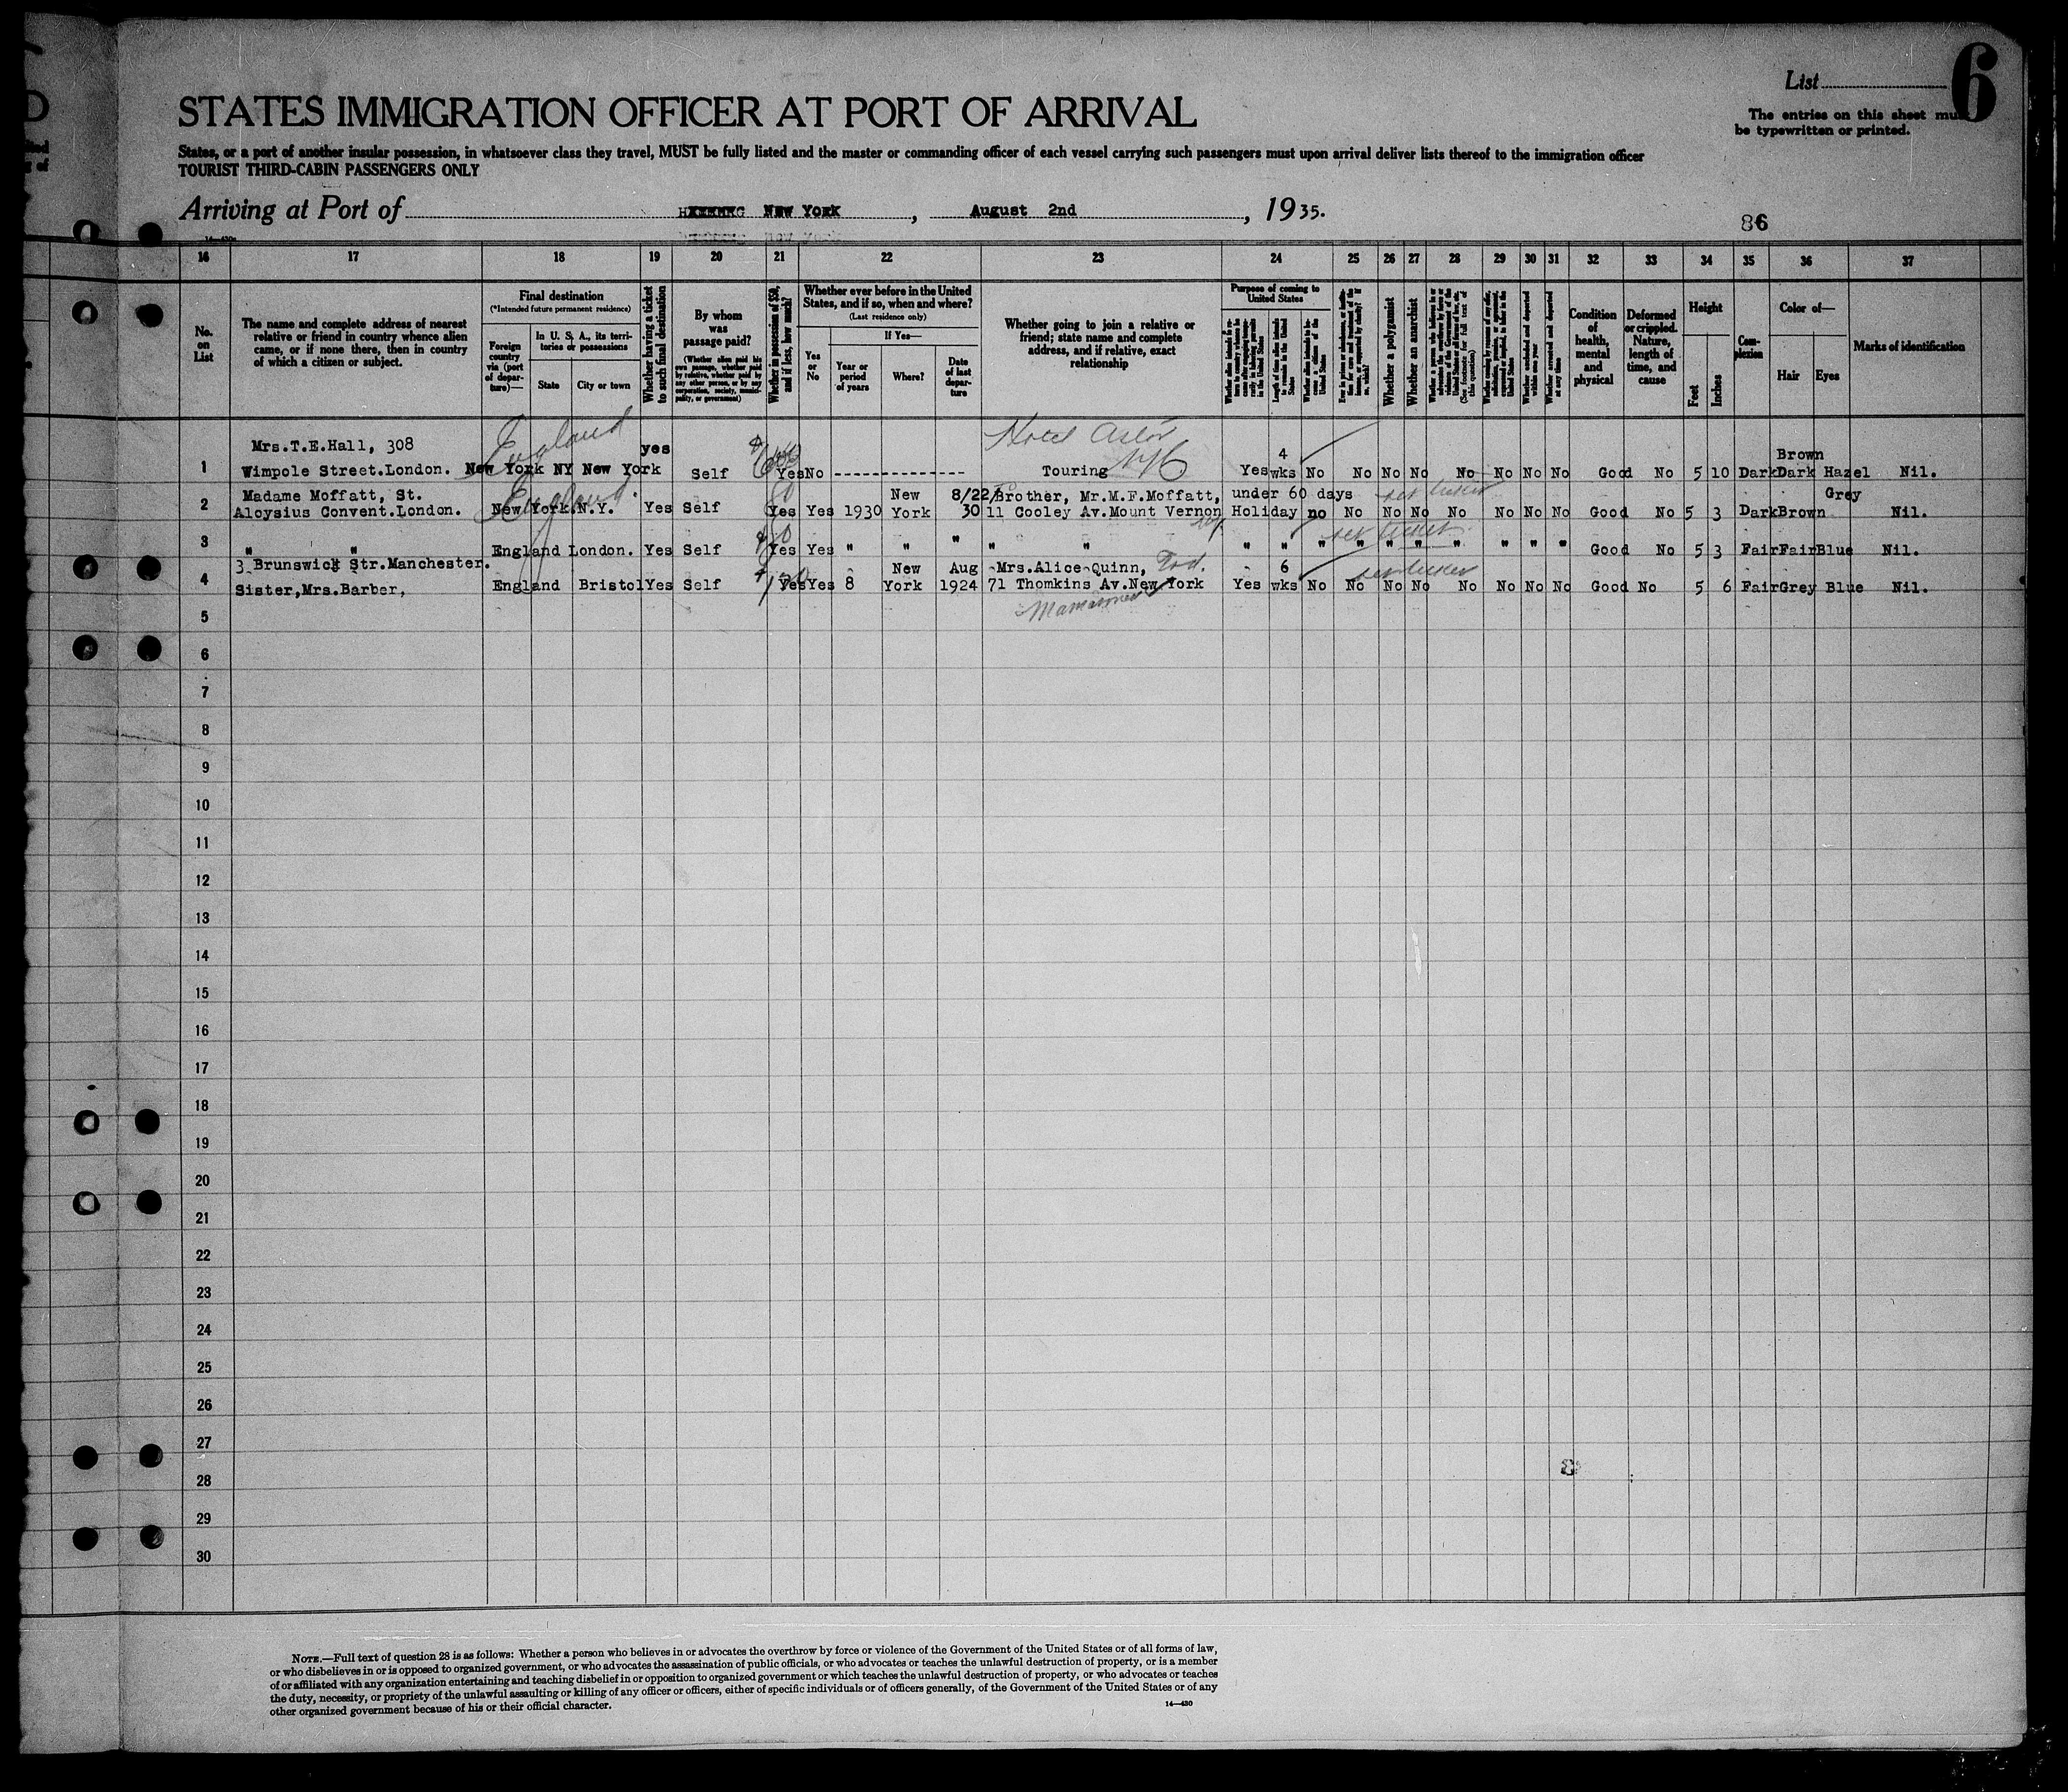 List
6
The entries on this sheet must
be typewritten or printed.
STATES IMMIGRATION OFFICER AT PORT OF ARRIVAL
States, or a port of another insular possession, in whatsoever class they travel, MUST be fully listed and the master or commanding officer of each vessel carrying such passengers must upon arrival deliver lists thereof to the immigration officer
TOURIST THIRD-CABIN PASSENGERS ONLY
Arriving at Port of NEW YORK, August 2nd, 1935.
86
16 17 18 19 20 21 22 23 24 25 26 27 28 29 30 31 32 33 34 35 36 37
No. on List
The name and complete address of nearest
relative or friend in country whence alien
came, or if none there, then in country
of which a citizen or subject.
Final destination
(*Intended future permanent residence)
Foreign country via (port of departure)—
In U. S. A., its territories or possessions
State
City or town
Whether having a ticket to such final destination
By whom was passage paid?
(Whether alien paid his own passage, whether paid by relative, whether paid by any other person, or by any corporation, society, municipality, or government)
Whether in possession of $50, and if less, how much?
Whether ever before in the United
States, and if so, when and where?
(Last residence only)
Yes or No
If Yes—
Year or period of years
Where?
Date of last departure
Whether going to join a relative or
friend; state name and complete
address, and if relative, exact
relationship
Purpose of coming to United States
Length of time alien intends to remain in the United States
Whether alien intends to become a citizen of the United States
Whether a polygamist
Whether an anarchist
(See footnote for full text of this question)
Whether arrested and deported at any time
Condition of health, mental and physical
Deformed or crippled. Nature, length of time, and cause
Height
Feet
Inches
Complexion
Color of—
Hair
Eyes
Marks of identification
England
Hotel Astor
Mrs.T.E.Hall, 308 yes 4 Brown
1 Wimpole Street.London. New York NY New York Self Yes No -------------- Touring NYC Yes wks No No No No No No No No Good No 5 10 Dark Dark Hazel Nil.
Madame Moffatt, St. England New 8/22/ Brother, Mr.M.F.Moffatt, under 60 days Grey
2 Aloysius Convent.London. New York.N.Y. Yes Self Yes Yes 1930 York 30 11 Cooley Av.Mount Vernon Holiday no No No No No No No No Good No 5 3 Dark Brown Nil.
3 " " England London. Yes Self Yes Yes " " " " " " " " " " " " " " " Good No 5 3 Fair Fair Blue Nil.
3 Brunswick Str.Manchester. New Aug Mrs.Alice Quinn, 6
4 Sister,Mrs.Barber, England Bristol Yes Self Yes Yes 8 York 1924 71 Thomkins Av.New York Yes wks No No No No No No No No Good No 5 6 Fair Grey Blue Nil.
5
6
7
8
9
10
11
12
13
14
15
16
17
18
19
20
21
22
23
24
25
26
27
28
29
30
NOTE.—Full text of question 28 is as follows: Whether a person who believes in or advocates the overthrow by force or violence of the Government of the United States or of all forms of law,
or who disbelieves in or is opposed to organized government, or who advocates the assassination of public officials, or who advocates or teaches the unlawful destruction of property, or is a member
of or affiliated with any organization entertaining and teaching disbelief in or opposition to organized government or which teaches the unlawful destruction of property, or who advocates or teaches
the duty, necessity, or propriety of the unlawful assaulting or killing of any officer or officers, either of specific individuals or of officers generally, of the Government of the United States or of any
other organized government because of his or their official character.
14—430